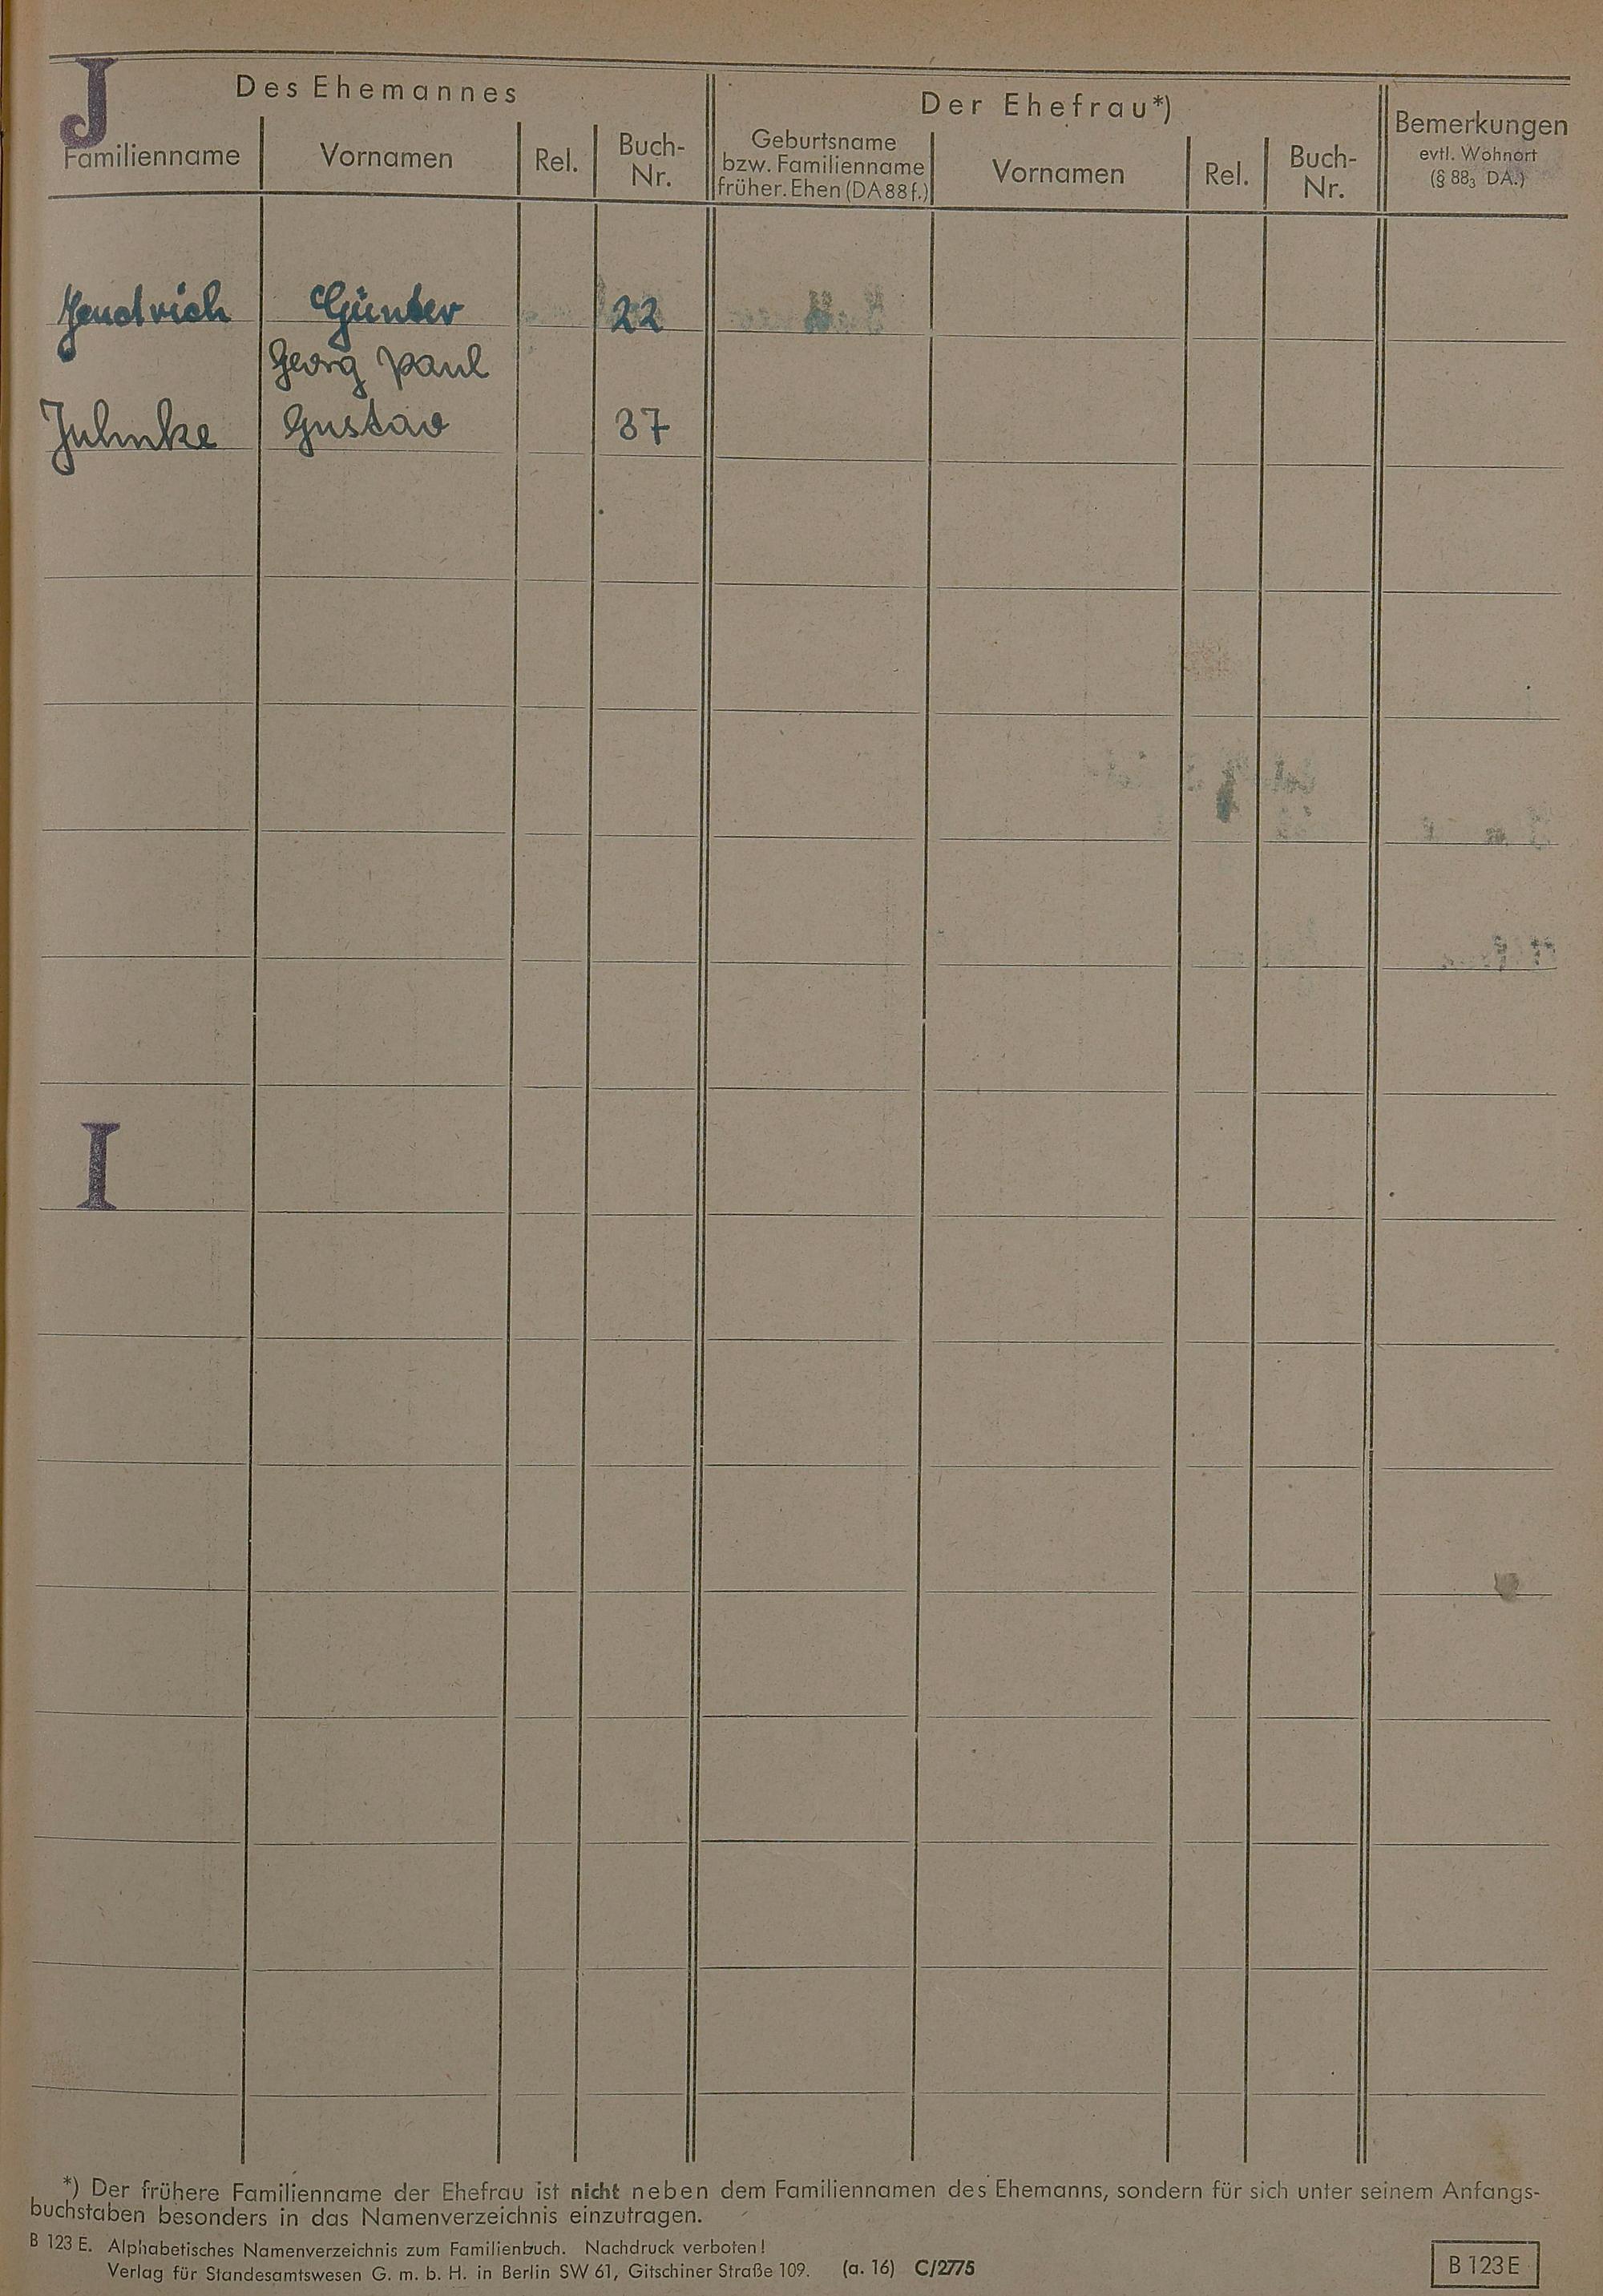 J
Des Ehemannes
Der Ehefrau*)
Familienname
Vornamen
Rel.
Buch-
Nr.
Geburtsname
bzw. Familienname
früher. Ehen (DA 88 f.)
Vornamen
Rel.
Buch-
Nr.
Bemerkungen
evtl. Wohnort
(§ 88₃ DA.)
Jendrich Günter 22
Georg Paul
Juhnke Gustav 37
I
*) Der frühere Familienname der Ehefrau ist nicht neben dem Familiennamen des Ehemanns, sondern für sich unter seinem Anfangs-
buchstaben besonders in das Namenverzeichnis einzutragen.
B 123 E. Alphabetisches Namenverzeichnis zum Familienbuch. Nachdruck verboten!
Verlag für Standesamtswesen G. m. b. H. in Berlin SW 61, Gitschiner Straße 109. (a. 16) C/2775
B 123 E